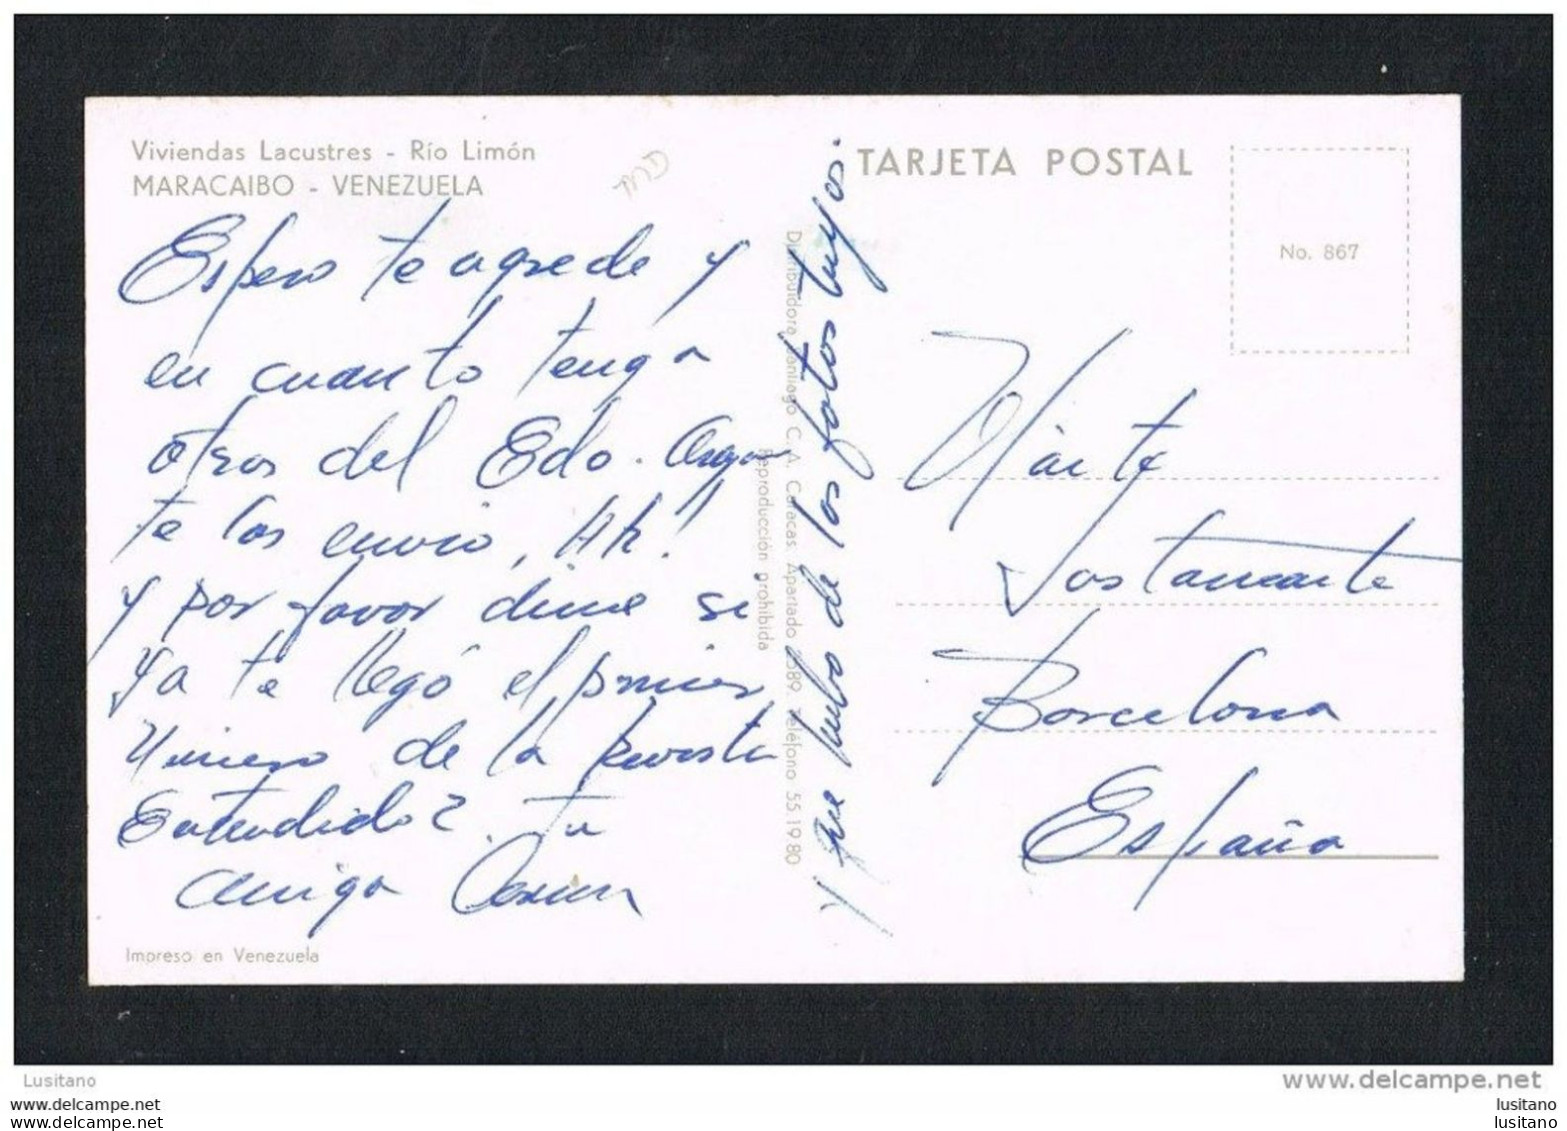 Viviendas Lacustres - Río Limón
MARACAIBO - VENEZUELA
Espero te agrede y
en cuanto tenga
otros del Edo.
te los envio, Ah!
y por favor dime si
ya te llegó el primer
número de la Revista
Entendido? Tu
amiga
Impreso en Venezuela
y que hubo de las fotos tuyas.
Distribuidora Santiago C.A. Caracas. Apartado 2589. Teléfono 55.19.80
Reproducción prohibida
TARJETA POSTAL
No. 867
Barcelona
España
Lusitano
www.delcampe.net
lusitano
lusitano
lusitano
lusitano